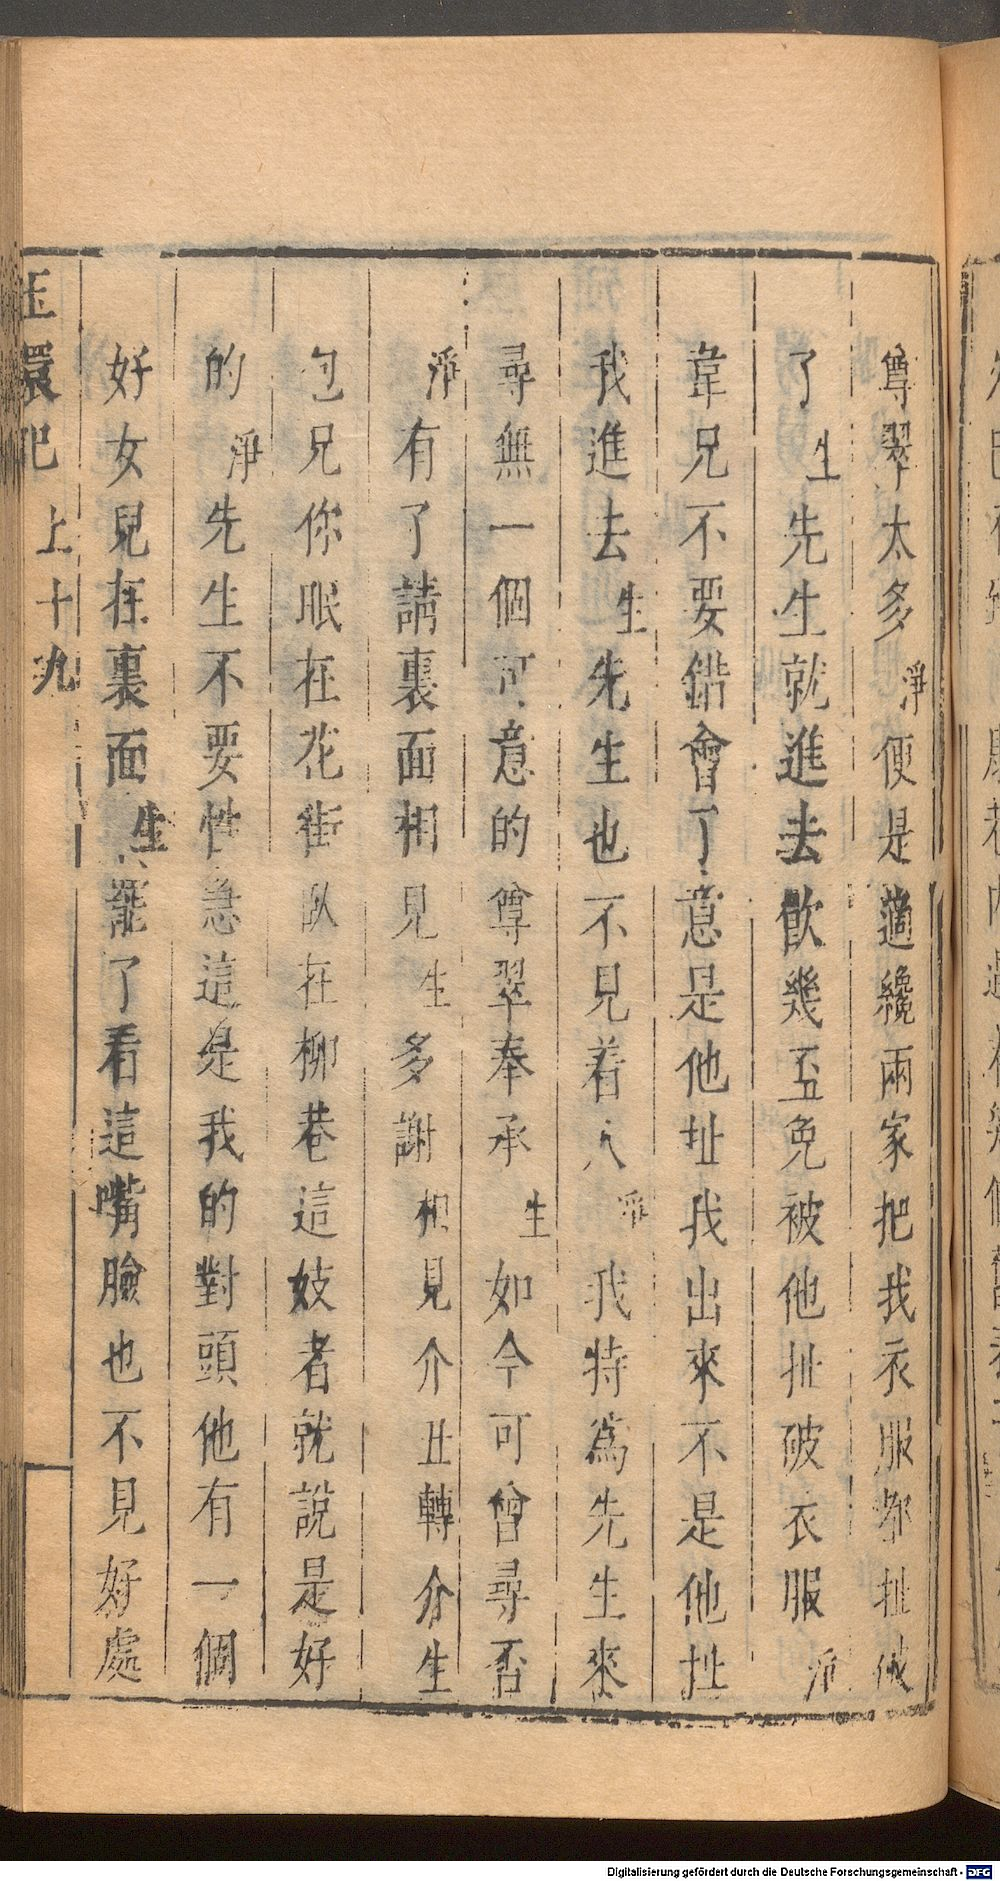 尊翠太多淨便是適纔兩家把我衣服都扯破
了生先生就進去飲幾盃免被他扯破衣服淨
韋兄不要錯會了意是他扯我出來不是他扯
我進去生先生也不見着人淨我特為先生來
尋無一個可意的尊翠奉承生如今可曾尋否
淨有了請裏面相見生多謝相見介丑轉介生
包兄你眠在花街臥在柳巷這妓者就說是好
的淨先生不要性急這是我的對頭他有一個
好女兒在裏面生罷了看這嘴臉也不見好處
玉環記 上十九
Digitalisierung gefördert durch die Deutsche Forschungsgemeinschaft - DFG